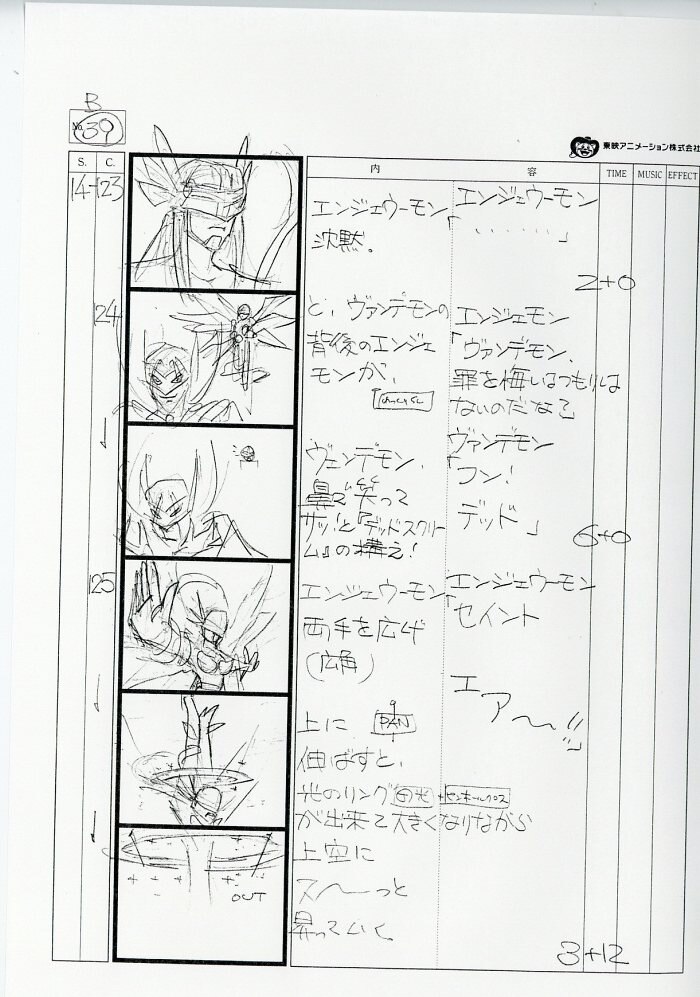 B
No. 39
東映アニメーション株式会社
S. C. 内 容 TIME MUSIC EFFECT
14-123
エンジェウーモン
沈黙。
エンジェウーモン
「・・・・・」
2+0
24
と、ヴァンデモンの
背後のエンジェ
モンが、
エンジェモン
「ヴァンデモン、
罪を悔いるつもりは
ないのだな?」
ヴァンデモン、
鼻で笑って
サッ!と『デッドスクリー
ム』の構え!
ヴァンデモン
「フン!
デッド」
6+0
25
エンジェウーモン
両手を広げ
(広角)
エンジェウーモン
「セイント
エアー〜!!」
上に PAN
伸ばすと、
光のリング
が出来て大きくなりながら
上空に
ス〜ーっと
昇っていく
OUT
3+12